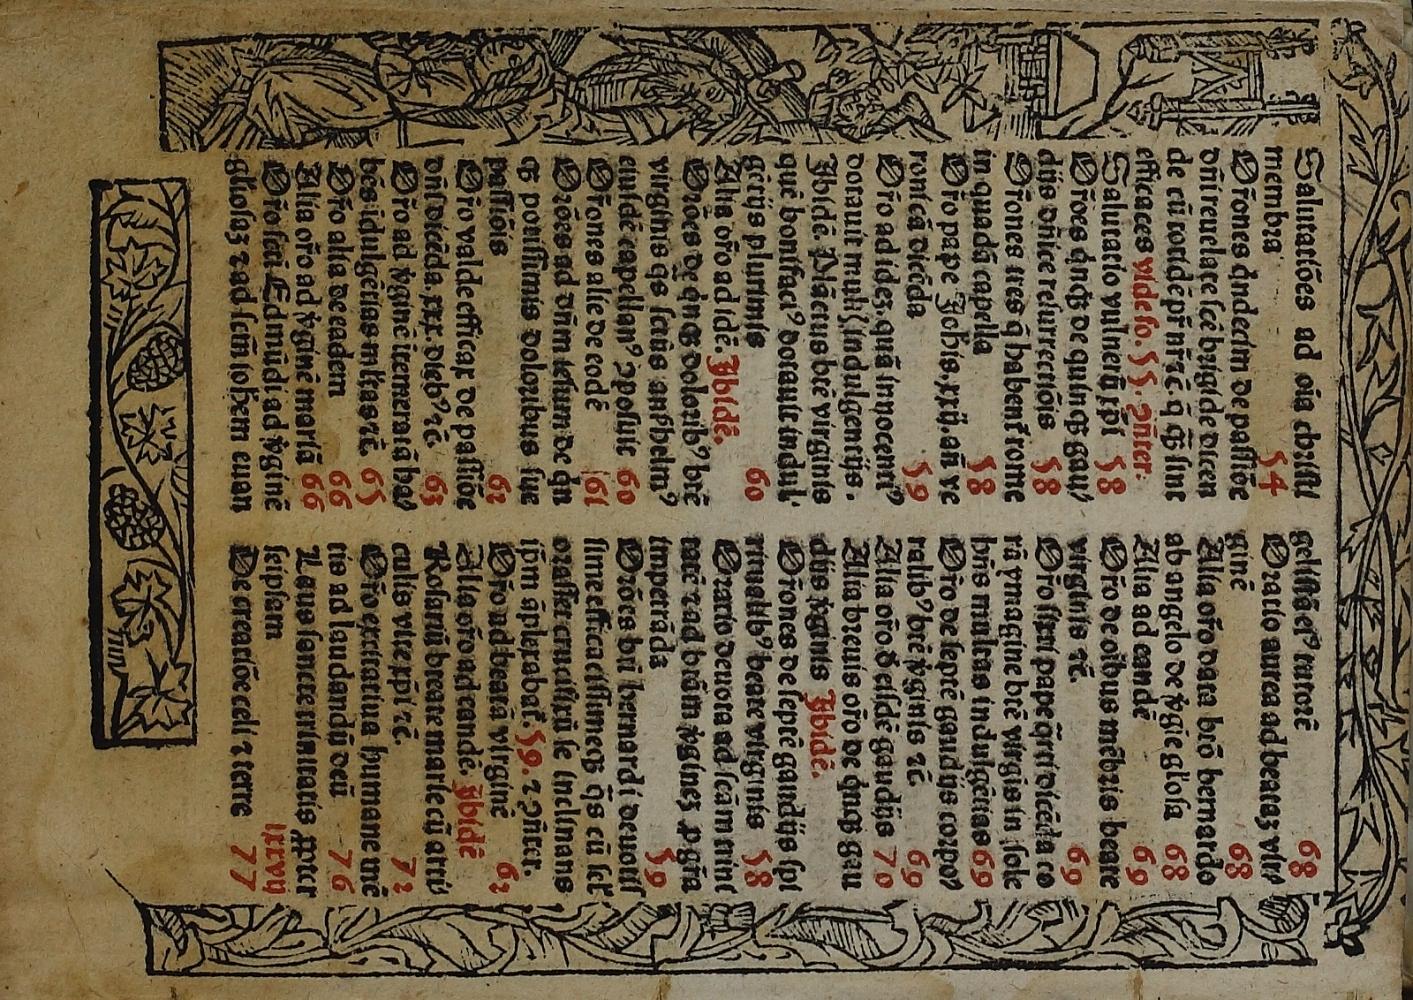 Salutatiōes ad oīa christi
membra 54
Ořones q̇ndecim de passiōe
dñi reuelate scē brigide dicen
de cū roride pr̄ nr̄ ꝛc̄. q̄ ꝙ sint
efficaces vide fo. 55. ꝯñter.
Salutatio vulnerū xp̄i 58
Ořoes q̇nꝙ de quinꝙ gau/
dijs dñice resurrectiōis 58
Ořones tres q̄ habent̄ rome
in quadā capella 58
Ořo pape Johis. xxij. añ ve
ronicā dicēda 59
Ořo ad idez. quā innocentꝰ
dorauit mult{ indulgentijs.
Ibidē. Nāctus btē virginis
quē bonifacꝰ dorauit indul/
gētijs plurimis 60
Alia ořo ad idē. Ibidē.
Ořões de q̇nꝙ dolorib' btē
virginis q̄s scūs anshelmꝰ
eiusdē capellanꝰ ꝯposuit 60
Ořones alie de eodē 61
Ořões ad dñm iesum de q̇n
ꝙ potissimis doloribus sue
passiōis 62
Ořo valde efficax de passiōe
dñi dicēda. xxx. dieb' ꝛc̄. 63
Ořo ad v̇ginē itemeratā ha/
bēs idulgētias mltas ꝛc̄. 65
Ořo alia de eadem 66
Alia ořo ad v̇ginē mariā 66
Ořo scti Edmūdi ad v̇ginē
gl̄iosaz ꝛ ad sctm iohem euan
gelistā eiꝰ tutorē 68
Oratio aurea ad beataz vir/
ginē 68
Alia ořo data btō bernardo
ab angelo de v̇gīe gl̄iosa 68
Alia ad eandē 69
Ořo de oībus mēbris beate
virginis ꝛc̄. 69
Ořo sixti pape q̄rti dicēda co
rā ymagine btē v̇rgis in sole
hñs multas indulgētias 69
Ořo de septē gaudijs corpo/
ralib' btē v̇ginis ꝛc̄ 69
Alia ořo d̄ eisdē gaudijs 70
Alia breuis ořo de q̇nꝙ gau
dijs v̇ginis Ibidē.
Ořones de septē gaudijs spi
ritualib' beate virginis 58
Oratio deuota ad scām trini
tatē ꝛ ad btām v̇ginez ꝓ gr̄a
imperāda 59
Ořões bti bernardi deuotis
sime efficacissimeꝙ q̄s cū sel'
orasset crucifixū se inclinans
ip̄m āplexabat̄. 59. ꝛ ꝯñter.
Ořo ad beatā virginē 62
Alia ořo ad eandē. Ibidē
Rosariū beate marie cū arti/
culis vite xp̄i ꝛc̄. 72
Ořo excitatiua humane mē
tis ad laudandū deū 76
Laus sancte trinitatis ꝓpter
seipsam lxxvij
De creatiōe celi ꝛ terre 77